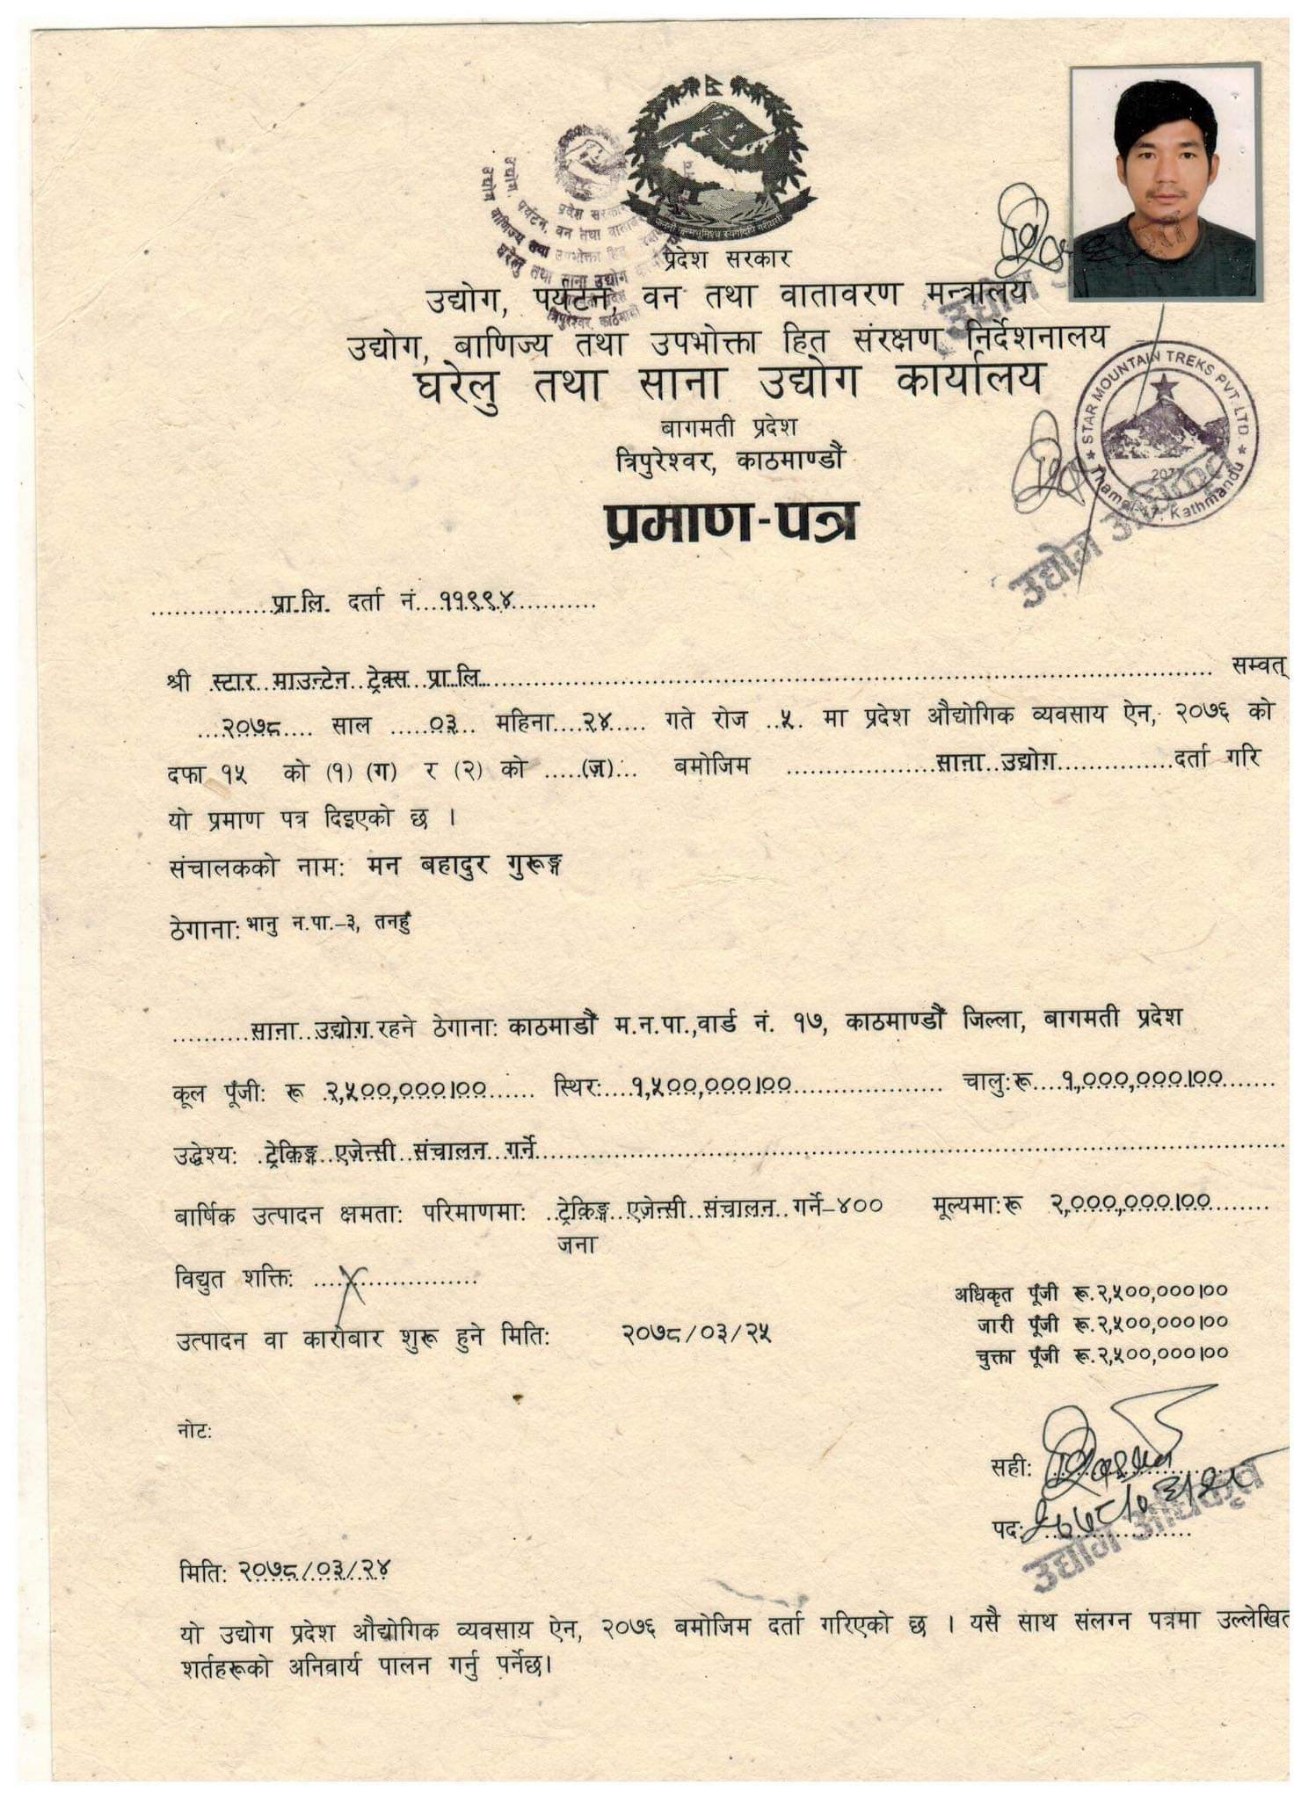 प्रदेश सरकार
उद्योग, पर्यटन, वन तथा वातावरण मन्त्रालय
उद्योग, बाणिज्य तथा उपभोक्ता हित संरक्षण निर्देशनालय
घरेलु तथा साना उद्योग कार्यालय
बागमती प्रदेश
त्रिपुरेश्वर, काठमाण्डौं
STAR MOUNTAIN TREKS PVT. LTD
Kathmandu
उद्योग अधिकृत
प्रमाण-पत्र
प्रा.लि. दर्ता नं...११९९४
श्री स्टार माउन्टेन ट्रेक्स प्रा.लि. सम्वत्
२०७८ साल ०३ महिना २४ गते रोज ५ मा प्रदेश औद्योगिक व्यवसाय ऐन, २०७६ को
दफा १५ को (१) (ग) र (२) को (ज) बमोजिम साना उद्योग दर्ता गरि
यो प्रमाण पत्र दिइएको छ ।
संचालकको नाम: मन बहादुर गुरूङ्ग
ठेगाना: भानु न.पा.-३, तनहुँ
साना उद्योग रहने ठेगाना: काठमाडौं म.न.पा.,वार्ड नं. १७, काठमाण्डौं जिल्ला, बागमती प्रदेश
कूल पूँजी: रू २,५००,०००।०० स्थिर: १,५००,०००।०० चालु:रू १,०००,०००।००
उद्धेश्य: ट्रेकिङ्ग एजेन्सी संचालन गर्ने
बार्षिक उत्पादन क्षमता: परिमाणमा: ट्रेकिङ्ग एजेन्सी संचालन गर्ने-४०० मूल्यमा:रू २,०००,०००।००
जना
विद्युत शक्ति:
अधिकृत पूँजी रू.२,५००,०००।००
जारी पूँजी रू.२,५००,०००।००
उत्पादन वा कारोबार शुरू हुने मिति: २०७८/०३/२५
चुक्ता पूँजी रू.२,५००,०००।००
नोट:
सही:
पद:
उद्योग अधिकृत
मिति: २०७८/०३/२४
यो उद्योग प्रदेश औद्योगिक व्यवसाय ऐन, २०७६ बमोजिम दर्ता गरिएको छ । यसै साथ संलग्न पत्रमा उल्लेखित
शर्तहरूको अनिवार्य पालन गर्नु पर्नेछ।